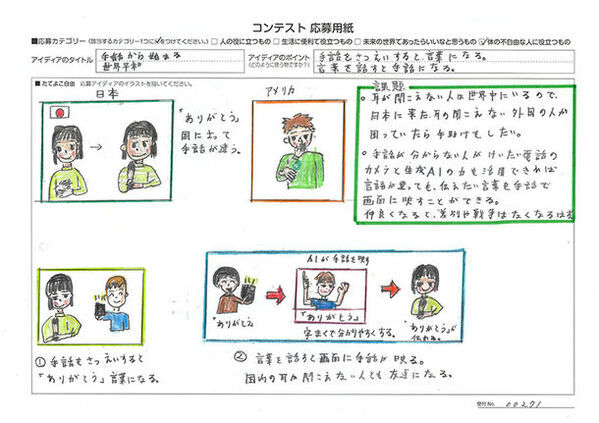 コンテスト 応募用紙
■応募カテゴリー（該当するカテゴリー1つに✓をつけてください。） □人の役に立つもの □生活に便利で役立つもの □未来の世界であったらいいなと思うもの ☑体の不自由な人に役立つもの
アイディアのタイトル
手話から始まる
世界平和
アイディアのポイント
（どのように使う物ですか？）
手話をさつえいすると、言葉になる。
言葉を話すと手話になる。
■たてよこ自由 応募アイディアのイラストを描いてください。
日本
「ありがとう」
国に出って
手話が違う。
アメリカ
課題
。耳が聞こえない人は世界中にいるので、
日本に来た、耳の聞こえない外国の人が
困っていたら手助けをしたい。
。手話が分からない人がけいたい電話の
カメラと生成AIの力を活用できれば
言語が異っても、伝えたい言葉を手話で
画面に映すことができる。
仲良くなると、差別や戦争はなくなるはず
①手話をさつえいすると
「ありがとう」言葉になる。
AIが手話を映す
「ありがとう」
「ありがとう」
字まくで分かりやすくする。
「ありがとう」が
伝わる。
②言葉を話すと画面に手話が映る。
国内の耳が聞こえない人とも友達になる。
受付No. 00271